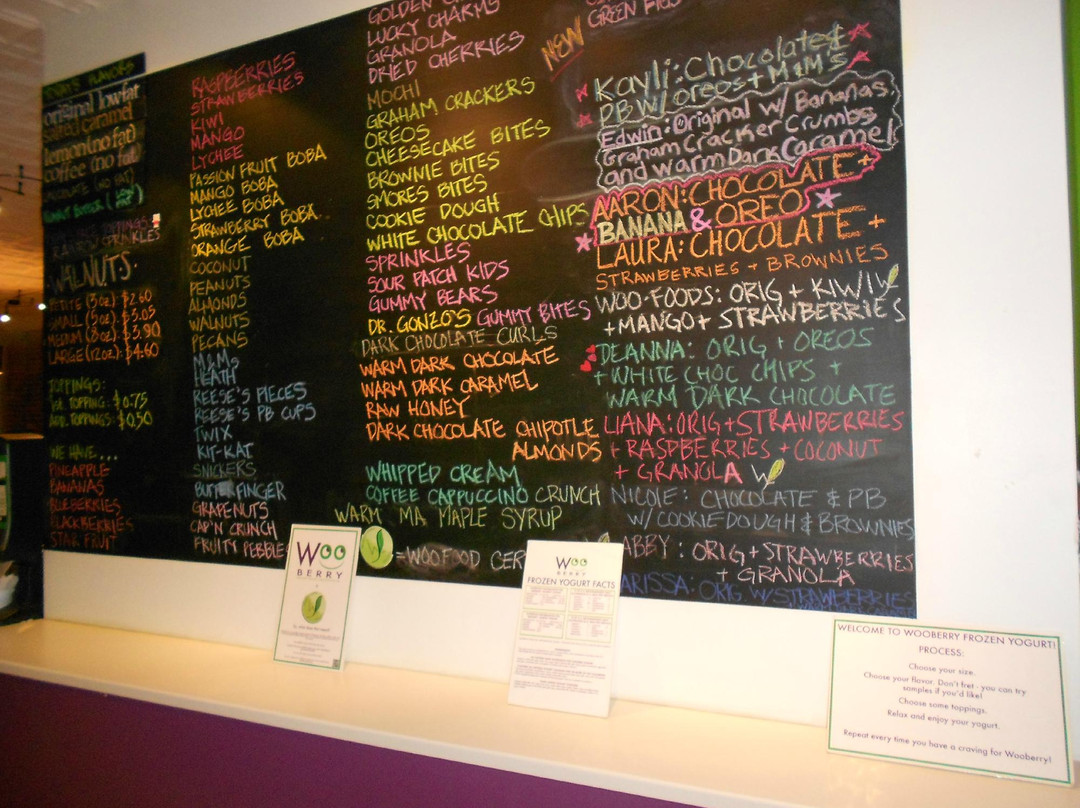 TODAY'S FLAVORS
original lowfat
salted caramel
lemon (no fat)
coffee (no fat)
CHOCOLATE (NO FAT)
PEANUT BUTTER
RAINBOW SPRINKLES
WALNUTS
PETITE (3oz): $2.60
SMALL (5oz): $3.05
MEDIUM (8oz): $3.90
LARGE (12oz): $4.60
TOPPINGS:
1st. TOPPING: $0.75
ADD. TOPPINGS: $0.50
WE HAVE...
PINEAPPLE
BANANAS
BLUEBERRIES
BLACKBERRIES
STAR FRUIT
RASPBERRIES
STRAWBERRIES
KIWI
MANGO
LYCHEE
PASSION FRUIT BOBA
MANGO BOBA
LYCHEE BOBA
STRAWBERRY BOBA
ORANGE BOBA
COCONUT
PEANUTS
ALMONDS
WALNUTS
PECANS
M&Ms
HEATH
REESE'S PIECES
REESE'S PB CUPS
TWIX
KIT-KAT
SNICKERS
BUTTERFINGER
GRAPENUTS
CAP'N CRUNCH
FRUITY PEBBLES
GOLDEN
LUCKY CHARMS
GRANOLA
DRIED CHERRIES
MOCHI
GRAHAM CRACKERS
OREOS
CHEESECAKE BITES
BROWNIE BITES
SMORES BITES
COOKIE DOUGH
WHITE CHOCOLATE CHIPS
SPRINKLES
SOUR PATCH KIDS
GUMMY BEARS
DR. GONZO'S GUMMY BITES
DARK CHOCOLATE CURLS
WARM DARK CHOCOLATE
WARM DARK CARAMEL
RAW HONEY
DARK CHOCOLATE CHIPOTLE
ALMONDS
WHIPPED CREAM
COFFEE CAPPUCCINO CRUNCH
WARM MA MAPLE SYRUP
=WOOFOOD CER
NEW
GREEN FIGS
Kayli: Chocolate &
PB w/ oreos + M&M's
Edwin: Original w/ Bananas,
Graham Cracker Crumbs
and warm Dark Caramel
AARON: CHOCOLATE +
BANANA & OREO
LAURA: CHOCOLATE +
STRAWBERRIES + BROWNIES
WOO-FOODS: ORIG + KIWI
+ MANGO + STRAWBERRIES
DEANNA: ORIG + OREOS
+ WHITE CHOC CHIPS +
WARM DARK CHOCOLATE
LIANA: ORIG + STRAWBERRIES
+ RASPBERRIES + COCONUT
+ GRANOLA W
NICOLE: CHOCOLATE & PB
W/ COOKIE DOUGH & BROWNIES
ABBY: ORIG + STRAWBERRIES
+ GRANOLA
ARISSA: ORIG W/ STRAWBERRIES
WOO
BERRY
WOO
BERRY
FROZEN YOGURT FACTS
WELCOME TO WOOBERRY FROZEN YOGURT!
PROCESS:
Choose your size.
Choose your flavor. Don't fret - you can try
samples if you'd like!
Choose some toppings.
Relax and enjoy your yogurt.
Repeat every time you have a craving for Wooberry!